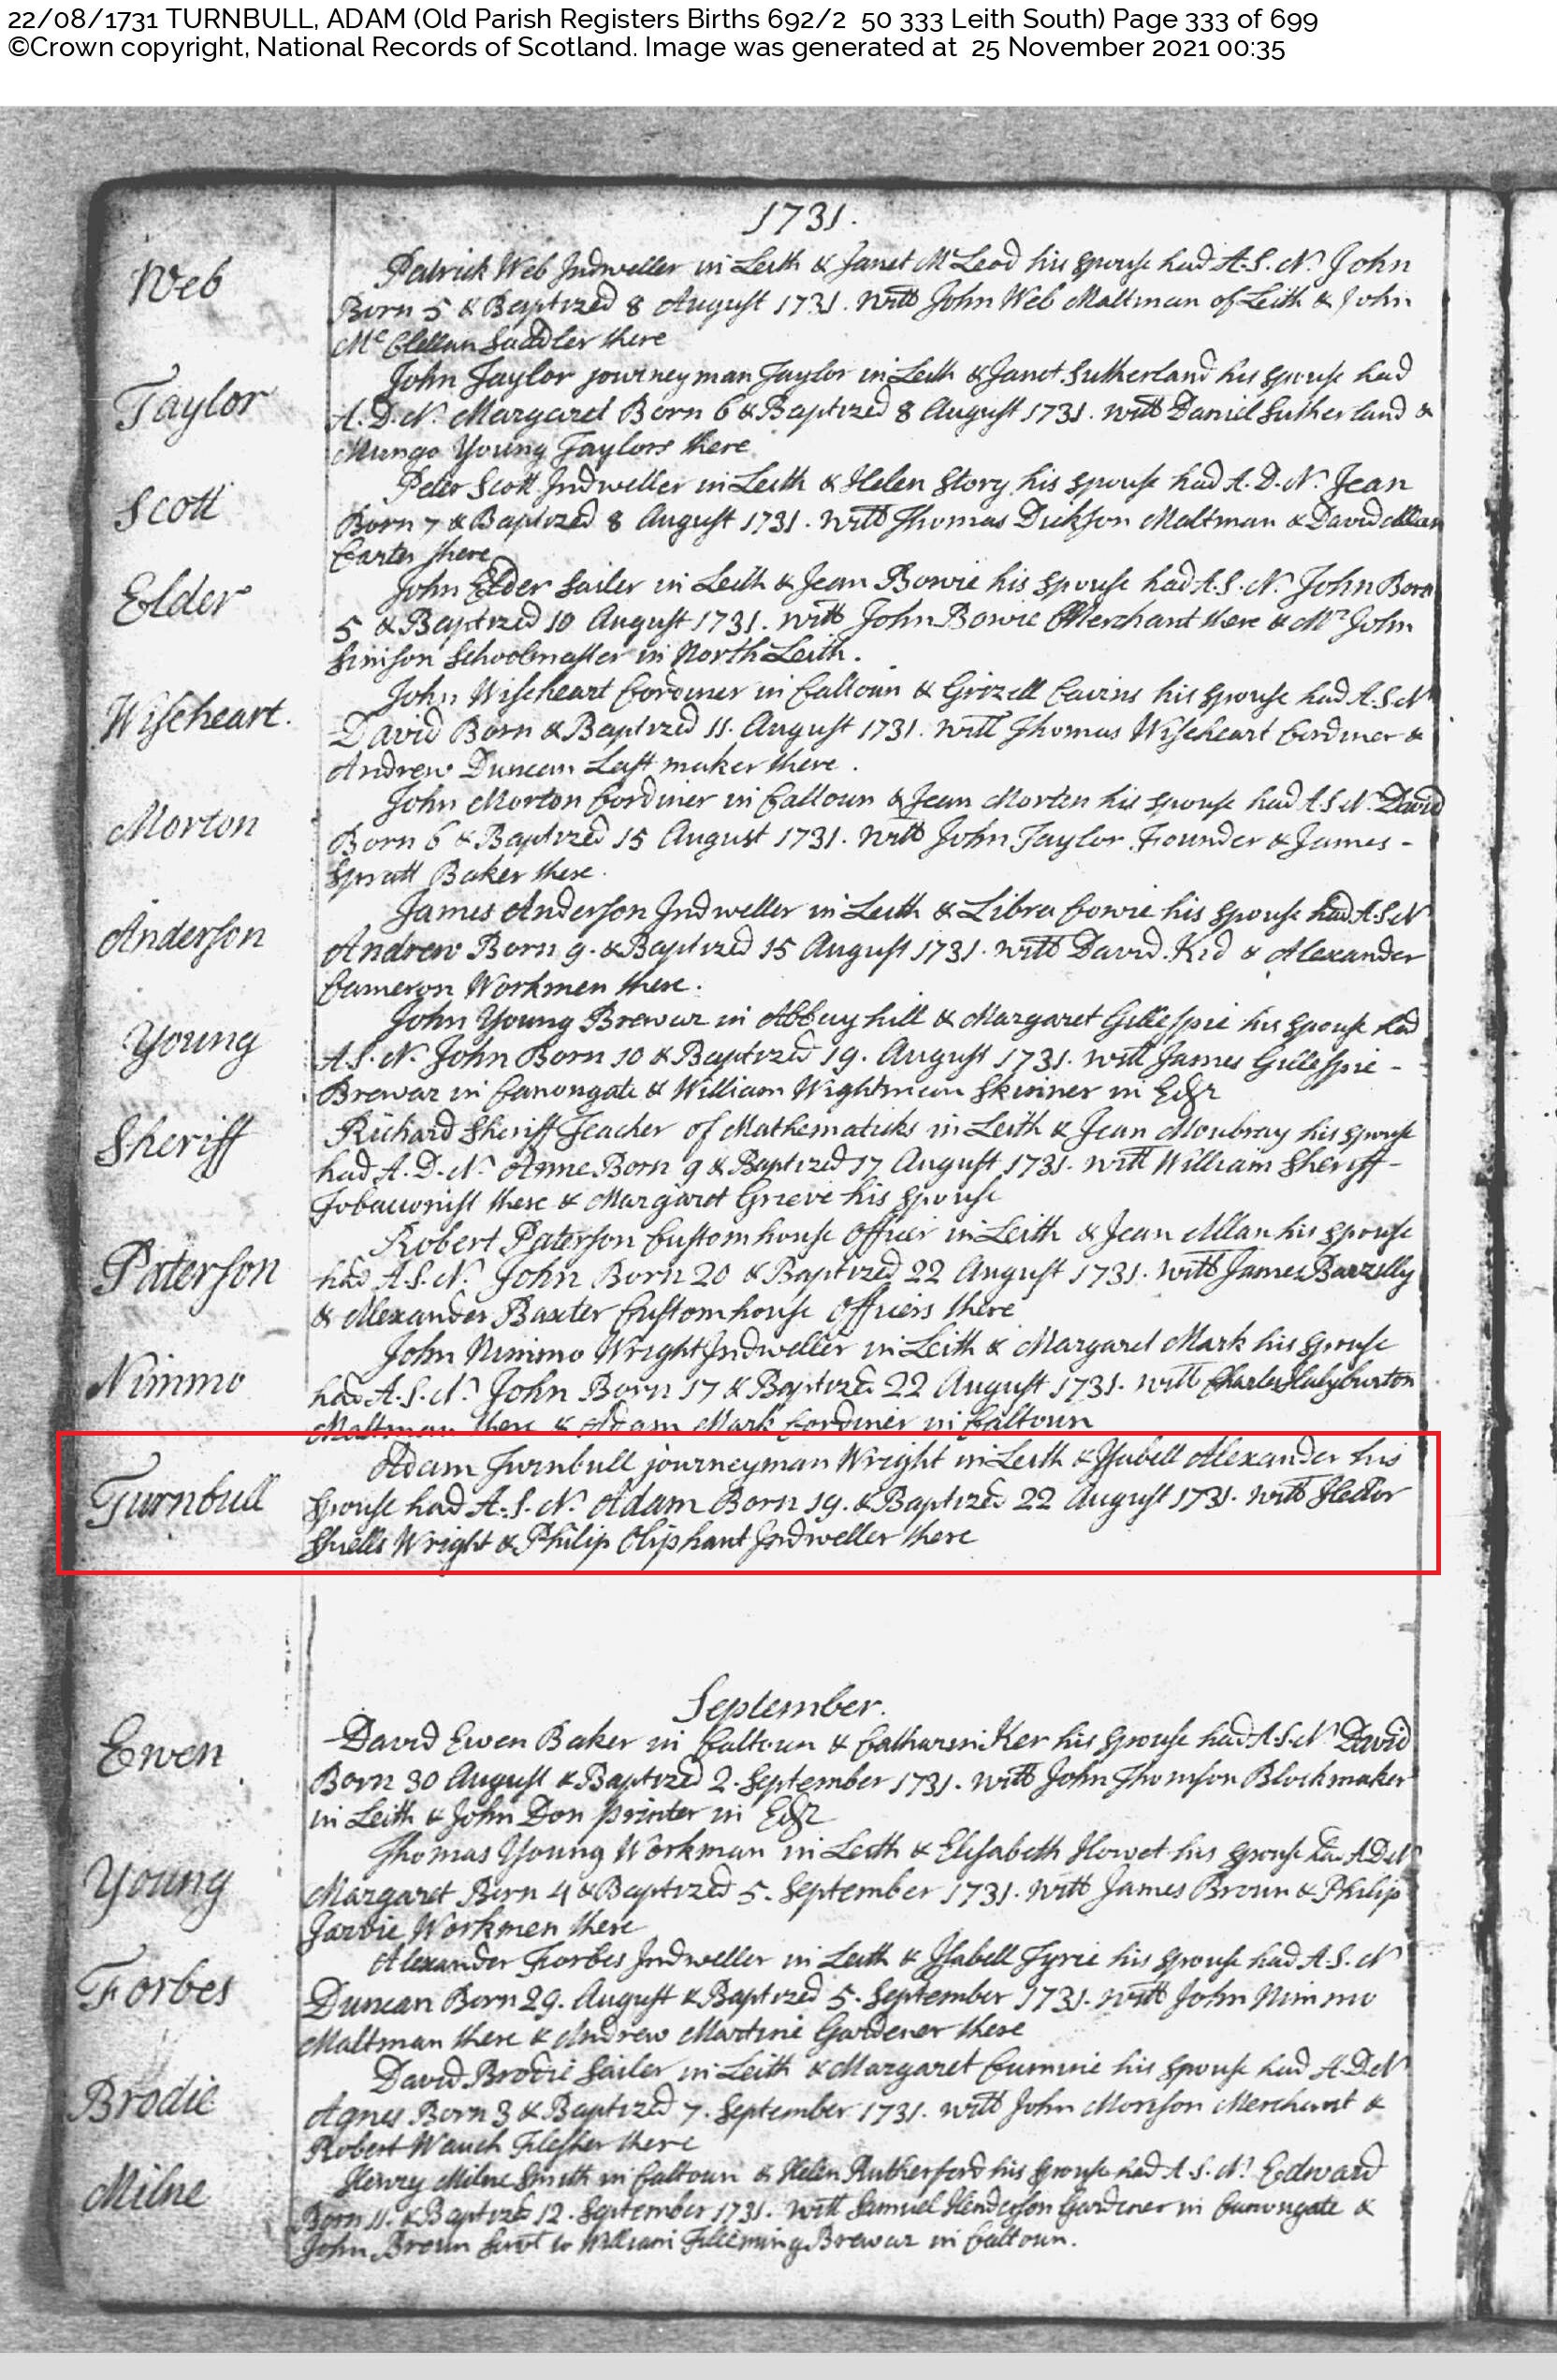 22/08/1731 TURNBULL, ADAM (Old Parish Registers Births 692/2 50 333 Leith South) Page 333 of 699
©Crown copyright, National Records of Scotland. Image was generated at 25 November 2021 00:35
1731.
Web
Patrick Web Indweller in Leith & Janet McLeod his spouse had A.S.N. John
Born 5 & Baptized 8 August 1731. Witt John Web Maltman of Leith & John
McClellan Saddler there
Taylor
John Taylor journeyman Taylor in Leith & Janet Sutherland his spouse had
A.D.N. Margaret Born 6 & Baptized 8 August 1731. Witt Daniel Sutherland &
Mungo Young Taylors there
Scott
Peter Scott Indweller in Leith & Helen Story his spouse had A.D.N. Jean
Born 7 & Baptized 8 August 1731. Witt Thomas Dickson Maltman & David Allan
Carter there
Elder
John Elder Sailer in Leith & Jean Bowie his spouse had A.S.N. John Born
5 & Baptized 10 August 1731. Witt John Bowie Merchant there & Mr John
Simson Schoolmaster in North Leith.
Wiseheart.
John Wiseheart Cordiner in Caltoun & Grizell Cavins his spouse had A.S.N.
David Born & Baptized 11. August 1731. Witt Thomas Wiseheart Cordiner &
Andrew Duncan Last maker there.
Morton
John Morton Cordiner in Caltoun & Jean Morten his spouse had A.S.N. David
Born 6 & Baptized 15 August 1731. Witt John Taylor Founder & James -
Spratt Baker there.
Anderson
James Anderson Indweller in Leith & Libra Cowie his spouse had A.S.N
Andrew Born 9. & Baptized 15 August 1731. Witt David Kid & Alexander
Cameron Workmen there.
Young
John Young Brewar in Abbayhill & Margaret Gillespie his spouse had
A.S.N. John Born 10 & Baptized 19. August 1731. Witt James Gillespie -
Brewar in Canongate & William Wightman Skinner in Edr
Sheriff
Richard Sheriff Teacher of Mathematicks in Leith & Jean Moubray his spouse
had A.D.N. Anne Born 9 & Baptized 17 August 1731. Witt William Sheriff -
Tobacconist there & Margaret Grieve his spouse
Paterson
Robert Paterson Customhouse officer in Leith & Jean Allan his spouse
had A.S.N. John Born 20 & Baptized 22 August 1731. Witt James
& Alexander Baxter Customhouse officers there
Nimmo
John Nimmo Wright Indweller in Leith & Margaret Mark his spouse
had A.S.N. John Born 17 & Baptized 22 August 1731. Witt Charles Halyburton
Maltman there & Adam Mark Cordiner in Caltoun
Turnbull
Adam Turnbull journeyman Wright in Leith & Isabell Alexander his
spouse had A.S.N. Adam Born 19. & Baptized 22 August 1731. Witt Hector
Shiells Wright & Philip Oliphant Indweller there
September.
Ewen
David Ewen Baker in Caltoun & Catharin Ker his spouse had A.S.N. David
Born 30 August & Baptized 2. September 1731. Witt John Thomson Blockmaker
in Leith & John Don printer in Edr
Young
Thomas Young Workman in Leith & Elisabeth Howet his spouse had A.D.N
Margaret Born 4 & Baptized 5. September 1731. Witt James Broun & Philip
Jarvie Workmen there
Forbes
Alexander Forbes Indweller in Leith & Isabell Tyrie his spouse had A.S.N
Duncan Born 29. August & Baptized 5. September 1731. Witt John Nimmo
Maltman there & Andrew Martine Gardener there
Brodie
David Brodie Sailer in Leith & Margaret Cumine his spouse had A.D.N
Agnes Born 3 & Baptized 7. September 1731. Witt John Morison Merchant &
Robert Wauch Flesher there
Milne
Henry Milne Smith in Caltoun & Helen Rutherford his spouse had A.S.N. Edward
Born 11. & Baptized 12. September 1731. Witt Samuel Henderson Gardener in Canongate &
John Broun Servt to William Fleeming Brewar in Caltoun.